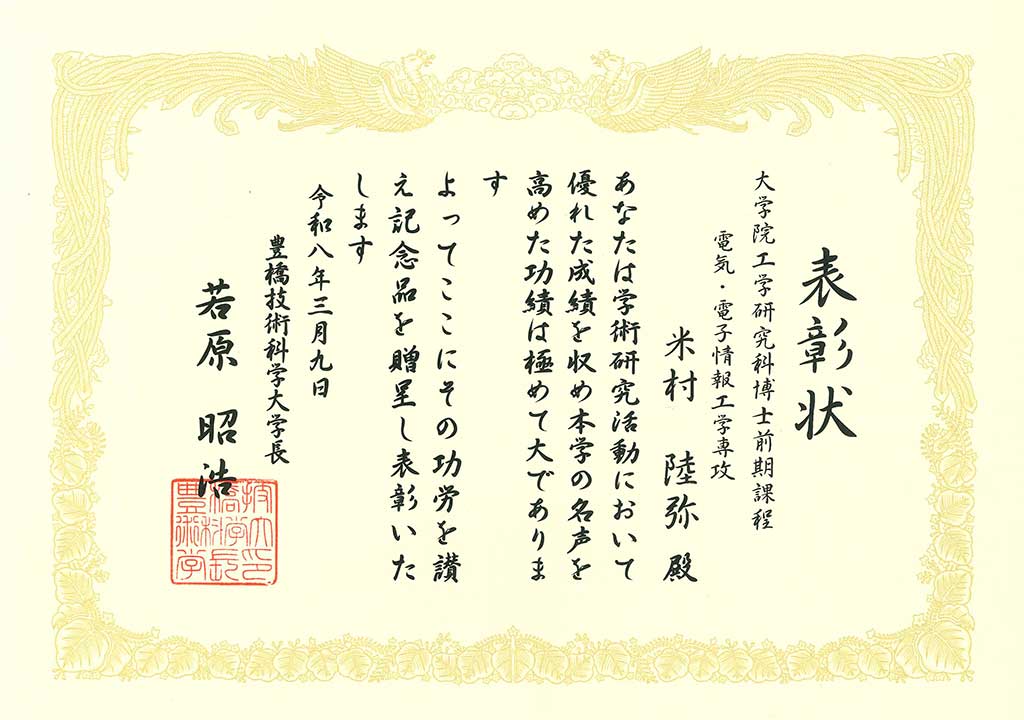 表彰状
大学院工学研究科博士前期課程
電気・電子情報工学専攻
米村 陸弥 殿
あなたは学術研究活動において
優れた成績を収め本学の名声を
高めた功績は極めて大でありま
す
よってここにその功労を讃
え記念品を贈呈し表彰いた
します
令和八年三月九日
豊橋技術科学大学長
若原 昭浩
技大印
橋科学長
豊術学